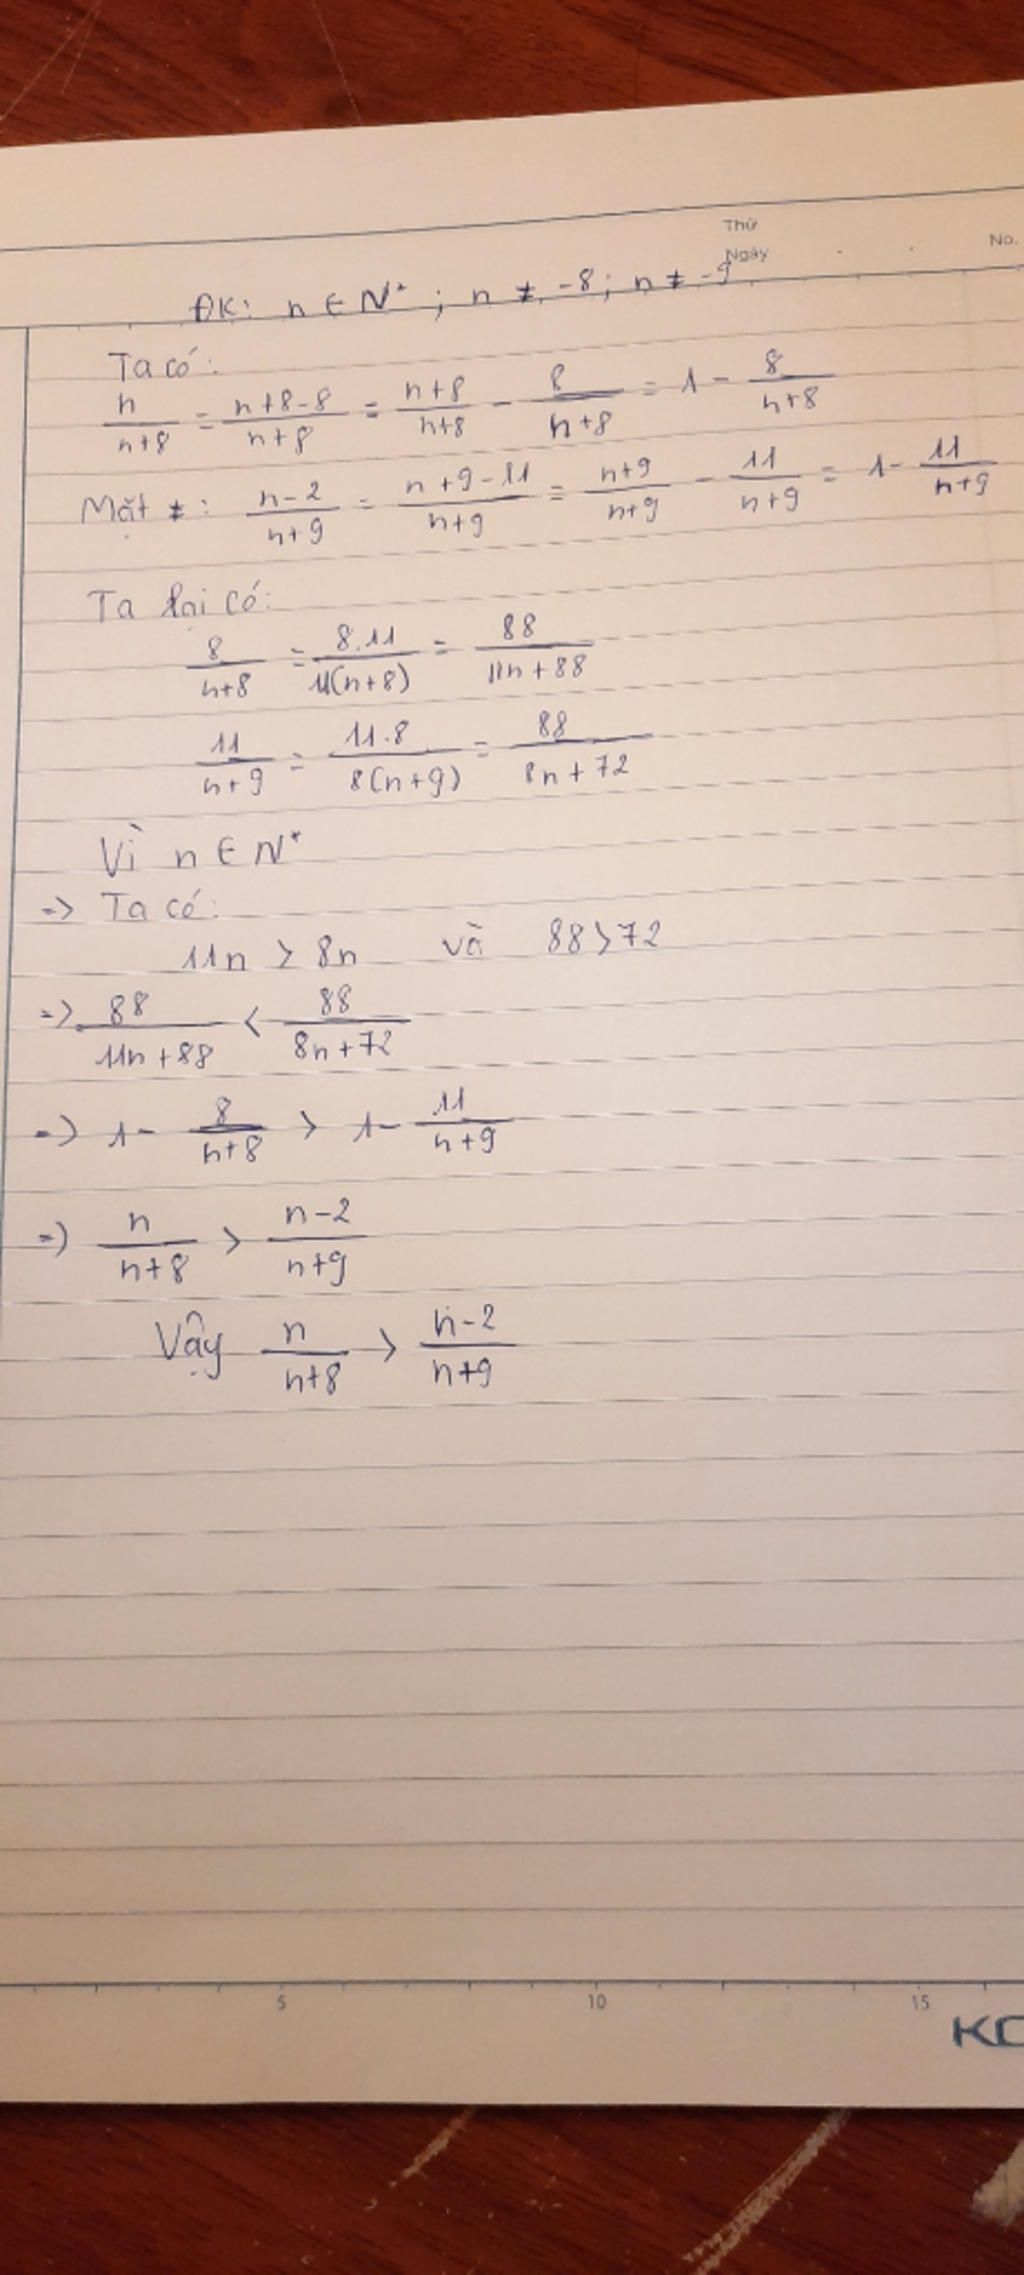 Thứ
Ngày
No.
ĐK: n ∈ N* ; n ≠ -8; n ≠ -9
Ta có:
n/(n+8) = (n+8-8)/(n+8) = (n+8)/(n+8) - 8/(n+8) = 1 - 8/(n+8)
Mặt ≠: (n-2)/(n+9) = (n+9-11)/(n+9) = (n+9)/(n+9) - 11/(n+9) = 1 - 11/(n+9)
Ta lại có:
8/(n+8) = 8.11/11(n+8) = 88/(11n+88)
11/(n+9) = 11.8/8(n+9) = 88/(8n+72)
Vì n ∈ N*
=> Ta có:
11n > 8n và 88>72
=> 88/(11n+88) < 88/(8n+72)
=> 1 - 8/(n+8) > 1 - 11/(n+9)
=> n/(n+8) > (n-2)/(n+9)
Vậy n/(n+8) > (n-2)/(n+9)
5 10 15